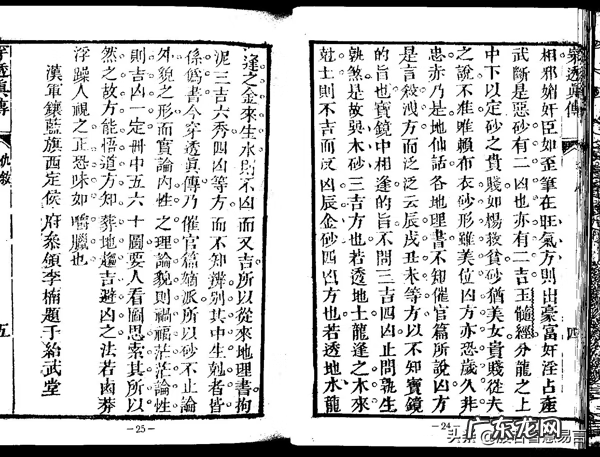 穿透眞傳
四
相邪媚奸臣如歪筆在旺氣方則出豪富奸淫占產
武斷是惡砂有二凶也亦有二吉玉髓經分龍之上
中下以定砂之貴賤如楊救貧砂猶美女貴賤從夫
之說不准唯賴布衣砂形雖美位凶方亦恐歲久并
患亦乃是地仙話各地理書不知催官篇所說凶方
是言殺洩方而泛泛云辰戌丑未等方以不知寶鏡
的旨也寶鏡中相逢的旨不問三吉四凶止問孰生
孰煞是故巽木砂三吉方也若透地土龍逢之木來
尅土則不吉而凶辰金砂四凶方也若透地水龍
-24-
逢之金來生水則不凶而又吉所以從來地理書拘
泥三吉六秀四凶等方而不知辨別其中生剋者皆
係僞書今穿透眞傳乃催官篇嫡派所以砂不止論
外貌之形而實論內性之理論貌則禍福茫茫論性
則吉凶一定冊中五六十圖要人看圖思索其所以
然之故方能悟道方知葬地趨吉避凶之法若鹵莽
浮躁人視之正恐味如嚼臘也
漢軍鑲藍旗西定侯府叅領李楠題于紿武堂
穿透眞傳
敘
五
-25-
广东龙网
头条
智慧易言